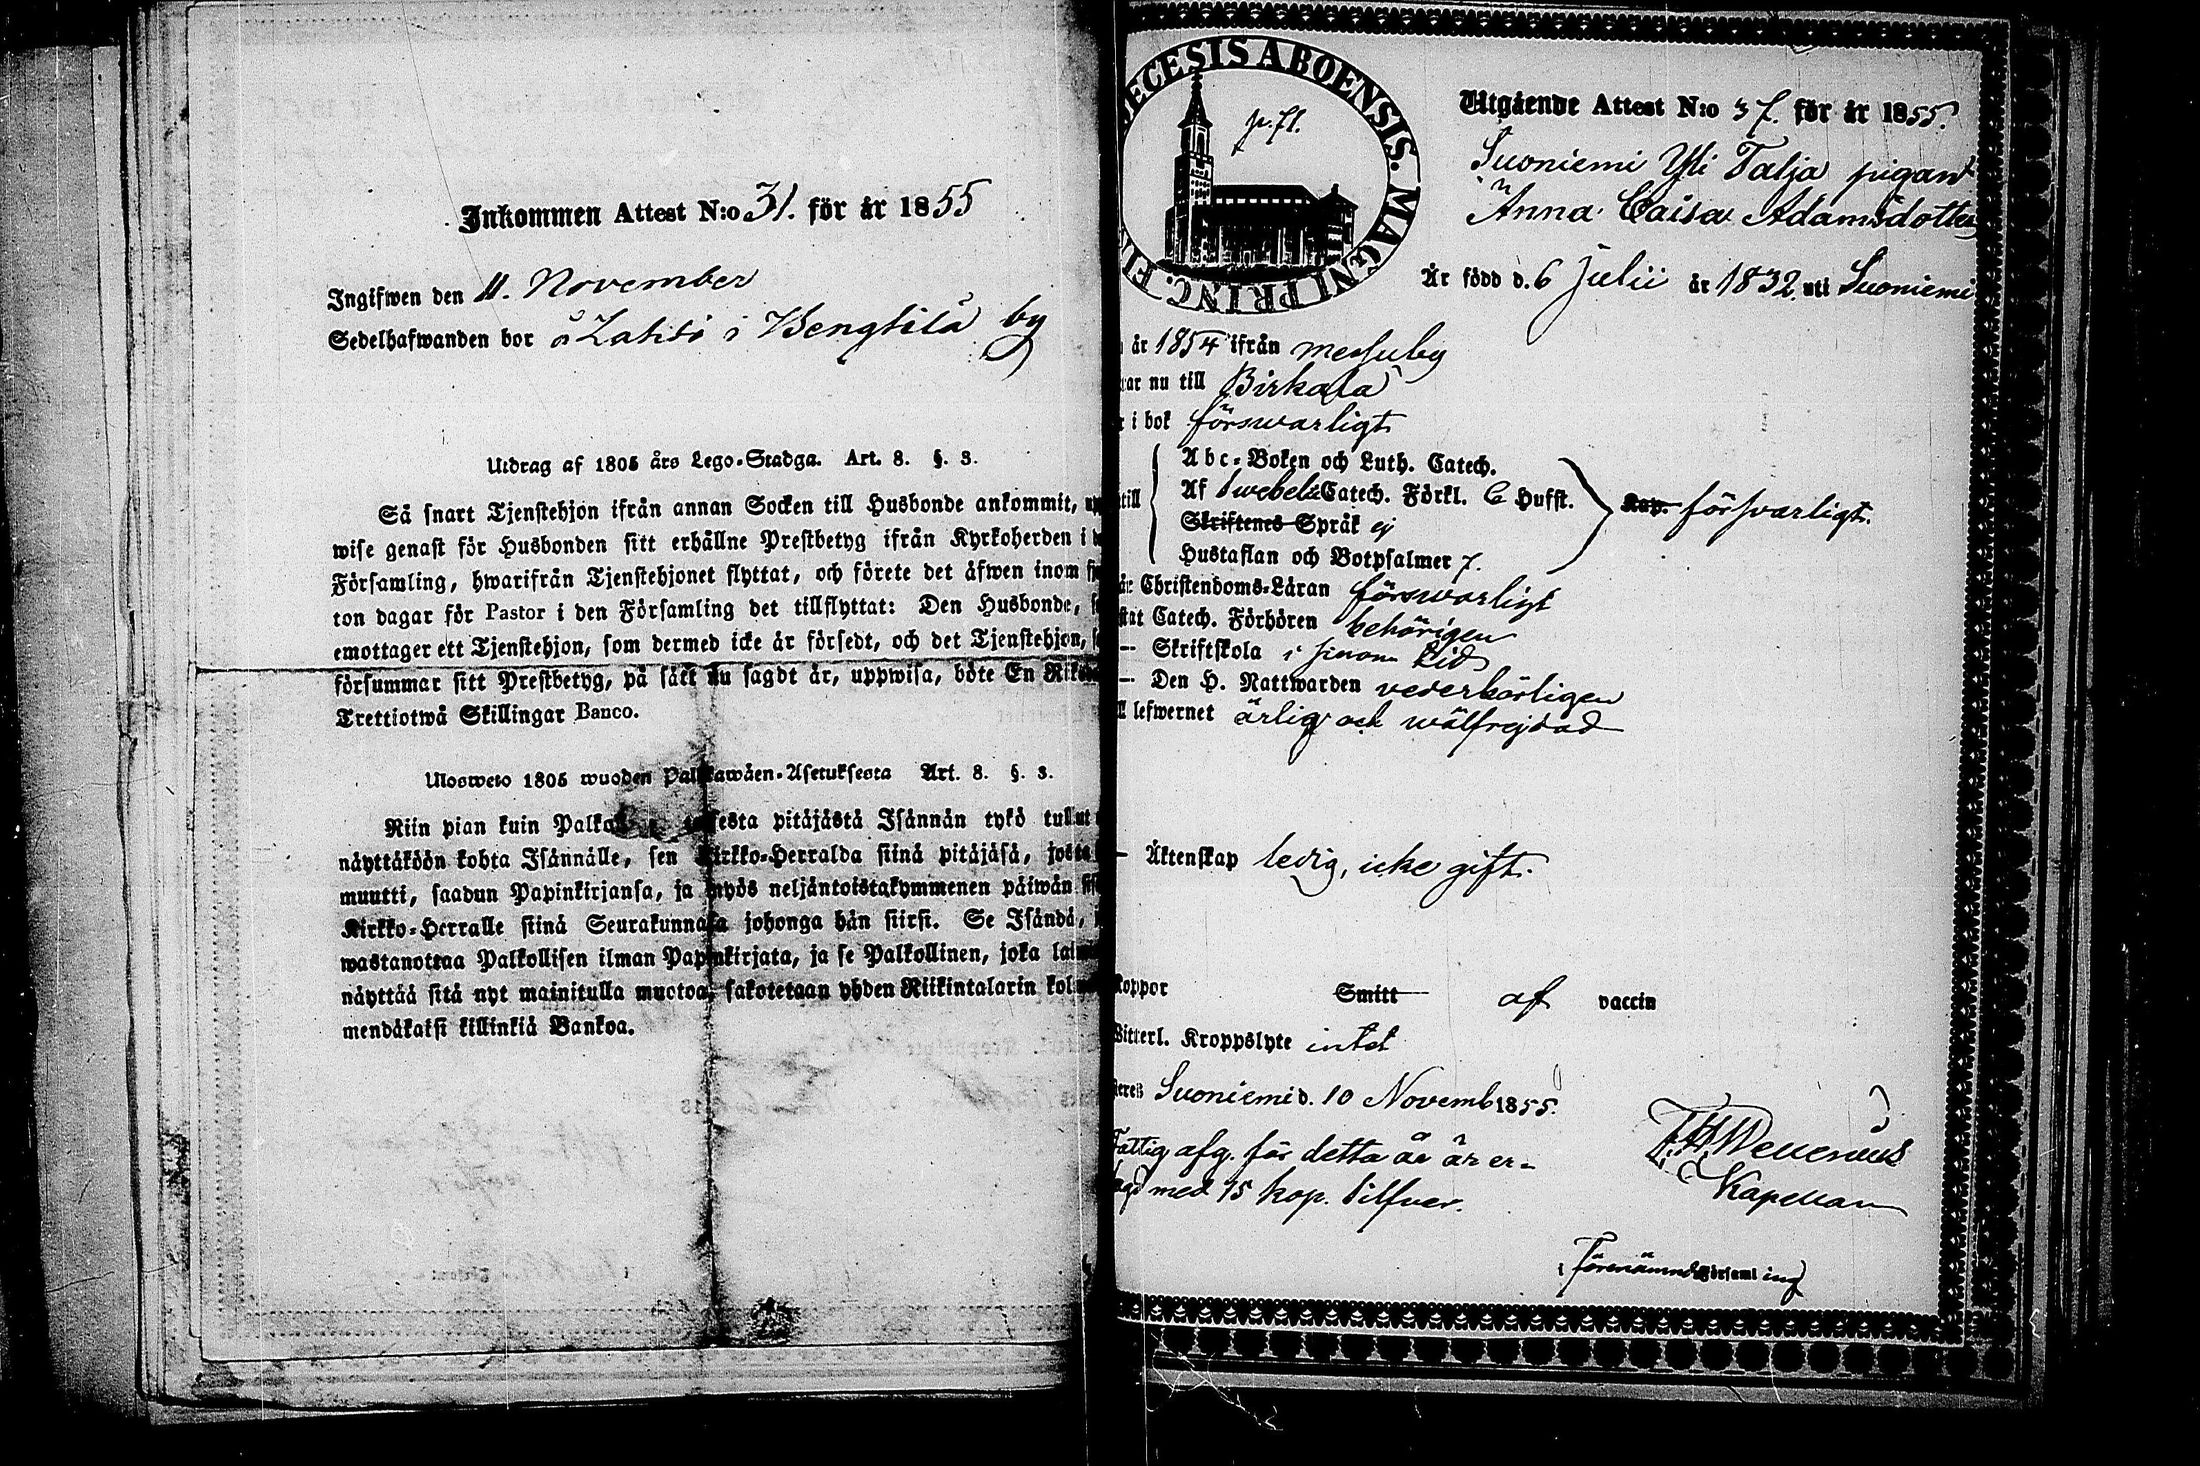 Inkommen Attest N:o 31. för år 1855
Ingifwen den 11. November
Sedelhafwanden bor å Lahis i Bengtilä by
Utdrag af 1805 års Lego-Stadga. Art. 8. §. 3.
Så snart Tjenstehjon ifrån annan Socken till Husbonde ankommit, up
wise genast för Husbonden sitt erhållne Prestbetyg ifrån Kyrkoherden i
Församling, hwarifrån Tjenstehjonet flyttat, och förete det äfwen inom fj
ton dagar för Pastor i den Församling det tillflyttat: Den Husbonde, s
emottager ett Tjenstehjon, som dermed icke är försedt, och det Tjenstehjon, s
försummar sitt Prestbetyg, på sätt nu sagdt är, uppwisa, böte En Riks
Trettiotwå Skillingar Banco.
Ulosweto 1805 wuoden Palkkawäen-Asetuksesta Art. 8. §. 3.
Niin pian kuin Palko sesta pitäjästä Isännän tykö tullut
näyttäköön kohta Isännälle, sen Kirkko-Herralda siinä pitäjäsä, josta
muutti, saadun Papinkirjansa, ja myös neljäntoistakymmenen päiwän sis
Kirkko-Herralle siinä Seurakunnasa johonga hän siirsi. Se Isändä,
wastanottaa Palkollisen ilman Papinkirjata, ja se Palkollinen, joka lai
näyttää sitä nyt mainitulla muotoa, sakotetaan yhden Riikintalarin kol
mendäkaksi killinkiä Bankoa.
ECESIS ABOENSIS. MAGNI PRINC. FI
p.fl.
Utgående Attest N:o 37. för år 1855.
Suoniemi Yli Talja pigan
Anna Caisa Adamsdotter
Är född d. 6 Julii år 1832. uti Suoniemi
år 1854 ifrån Messuby
ar nu till Birkala
i bok förswarligt
till
Abc-Boken och Luth. Catech.
Af Swebelii Catech. Förkl. & Hufst.
Skriftenes Språk ej
Hustaflan och Botpsalmer 7.
Kap. förswarligt.
är Christendoms-Läran förswarligt
stat Catech. Förhören behörigen
— Skriftskola i sinom tid
— Den H. Nattwarden vederbörligen
ll lefwernet ärlig och wälfrejdad
— Äktenskap ledig, icke gift.
koppor Smitt af vaccin
Witterl. Kroppslyte intet
teres Suoniemi d. 10 Novemb 1855.
Fattig afg. för detta år är er-
lagd med 15 kop. Silfver.
Kapellan
i förenämnde Församling